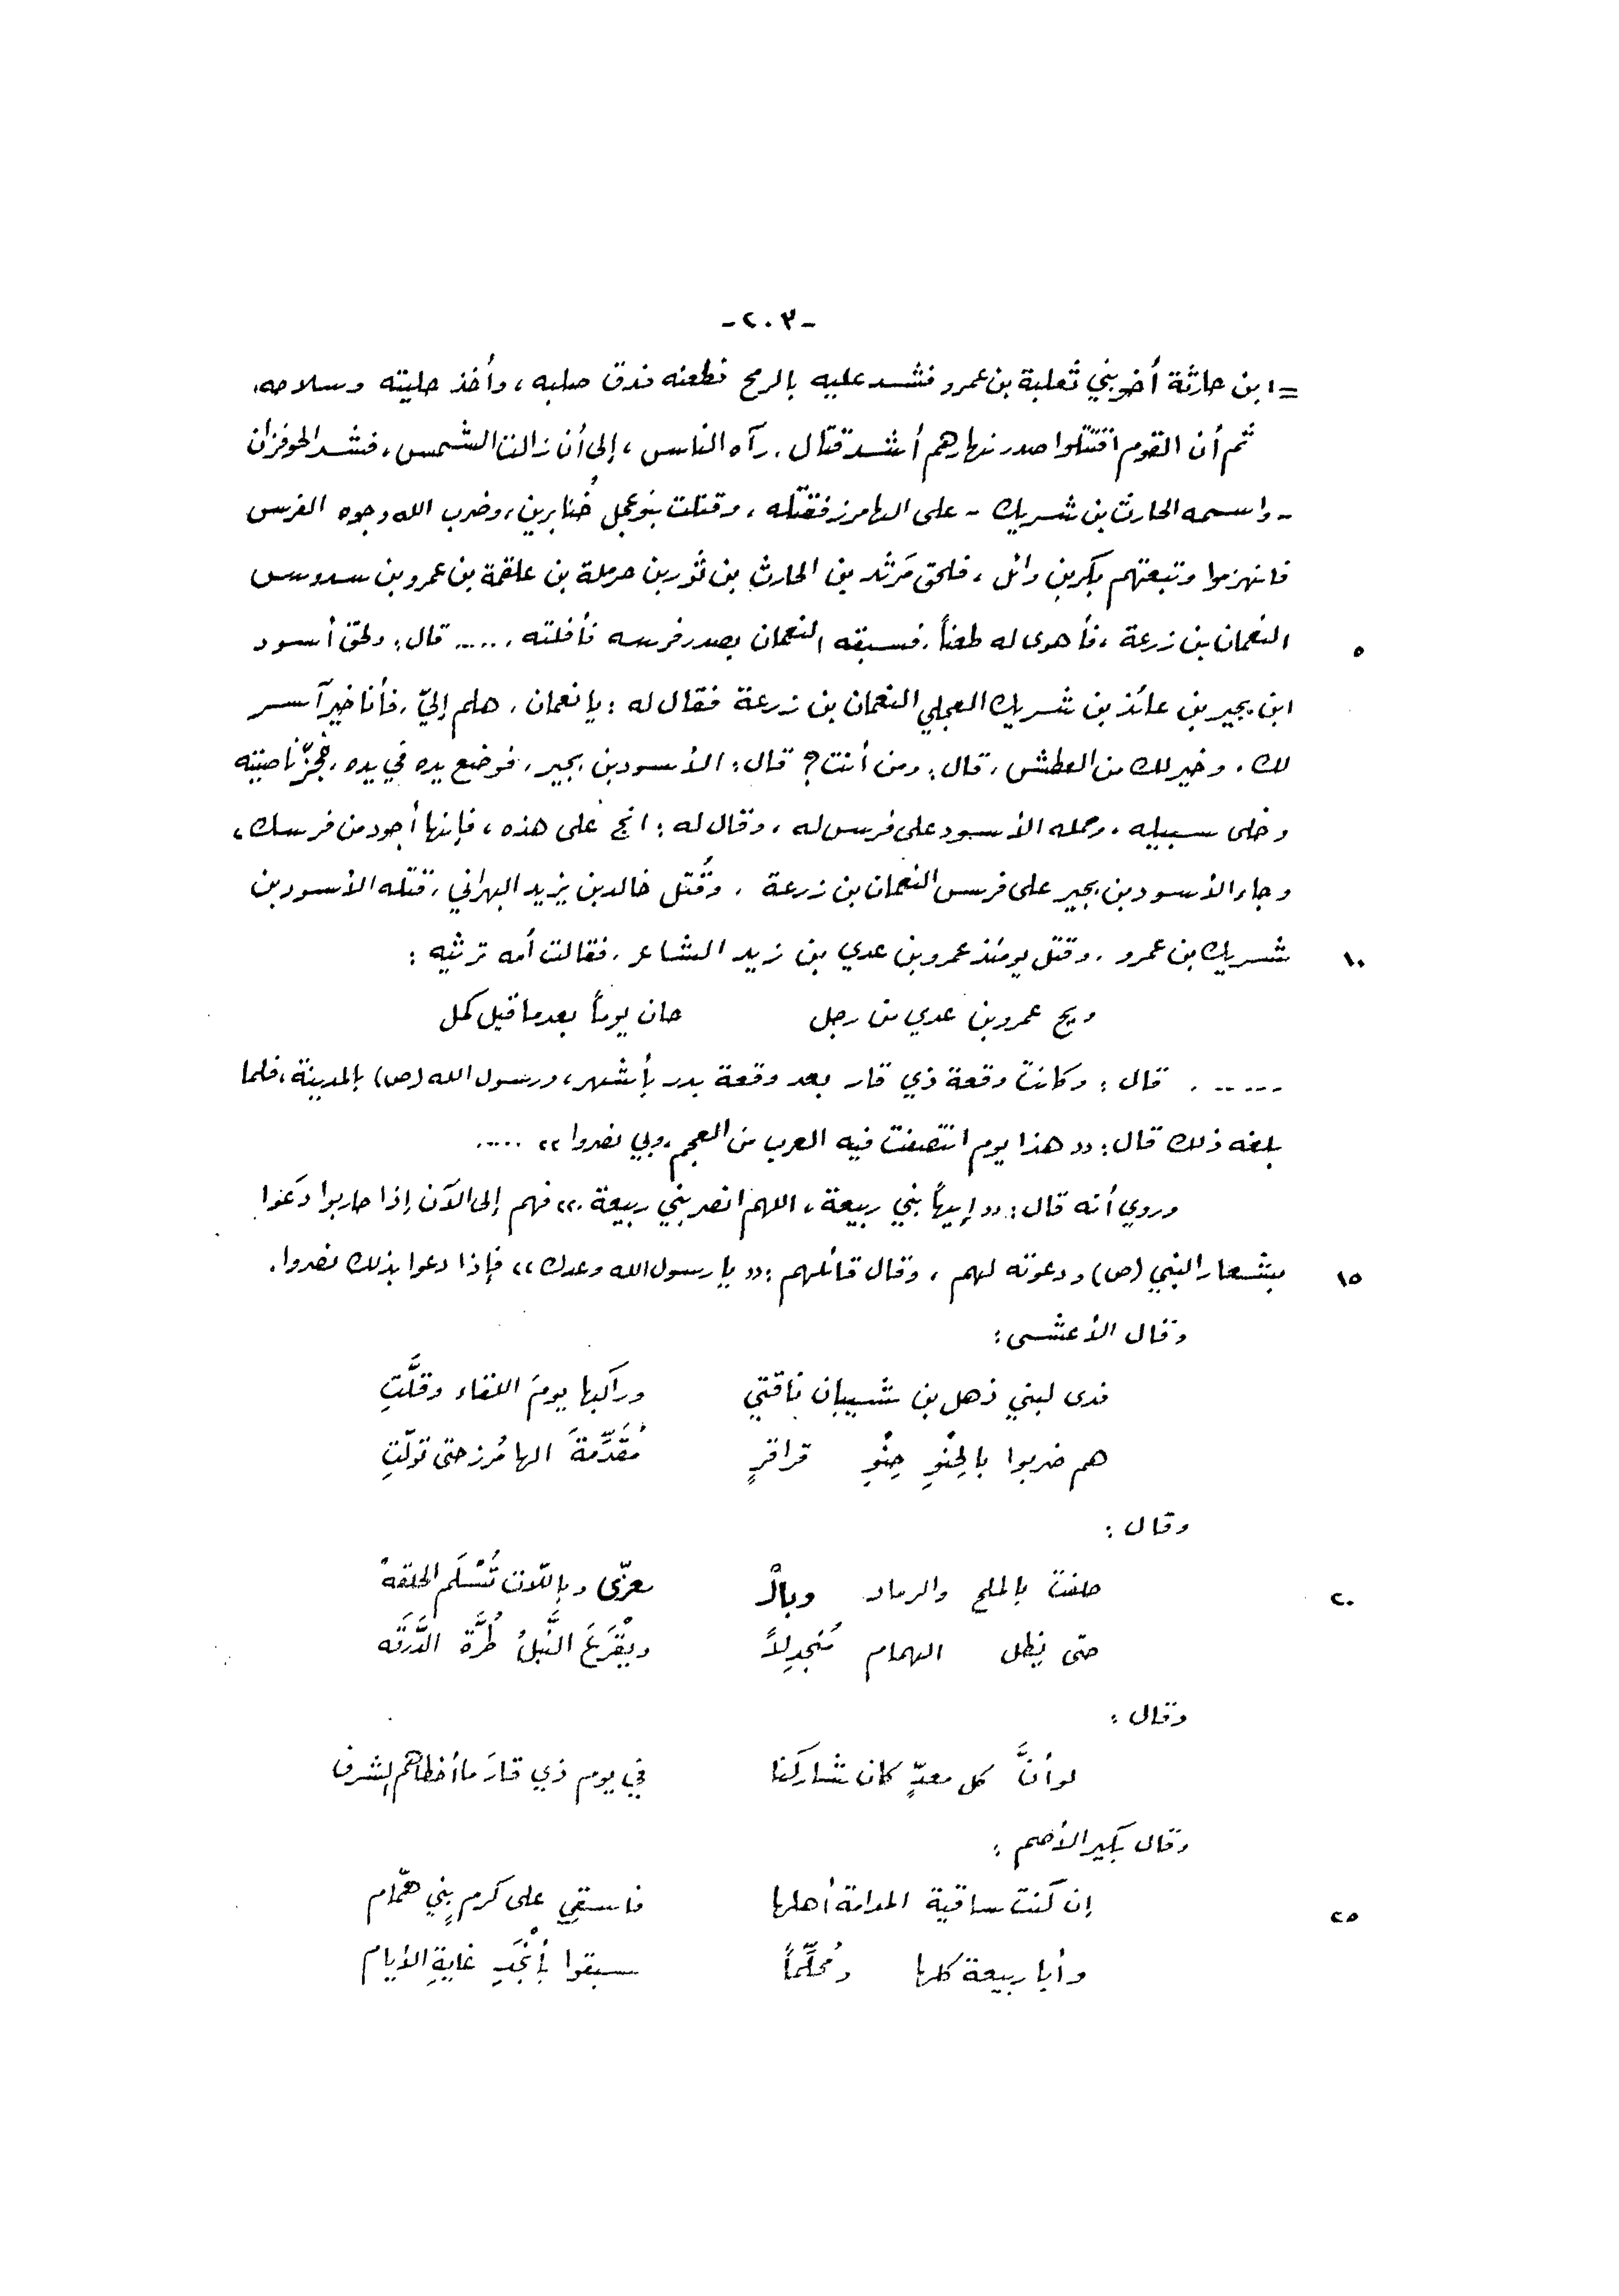 -٢٠٣-
= ابن حارثة أخو بني ثعلبة بن عمرو فشد عليه بالرمح فطعنه فدق صلبه ، وأخذ حليته وسلاحه .
ثم أن القوم اقتتلوا صدر نهارهم أشد قتال . رآه الناس ، إلى أن زالت الشمس ، فشد الحوفزان
- واسمه الحارث بن شريك - على الهامرز فقتله ، وقتلت بنو عجل خُنابرين ، وضرب الله وجوه الفرس
فانهزموا وتبعتهم بكر بن وائل ، فلحق مَرثد بن الحارث بن ثور بن حرملة بن علقمة بن عمرو بن سدوس
النعمان بن زرعة ، فأهوى له طعناً . فسبقه النعمان بصدر فرسه فأفلته . ..... قال : ولحق أسود
٥
ابن بجير بن عائذ بن شريك العجلي النعمان بن زرعة فقال له : يا نعمان . هلم إليّ ، فأنا خير آسر
لك . وخير لك من العطش . قال : ومن أنت ؟ قال : الأسود بن بجير . فوضع يده في يده ، فجزّ ناصيته
وخلى سبيله . وحمله الأسود على فرس له ، وقال له : انج على هذه ، فإنها أجود من فرسك ،
وجاء الأسود بن بجير على فرس النعمان بن زرعة . وقُتل خالد بن يزيد البهراني ، قتله الأسود بن
شريك بن عمرو . وقتل يومئذ عمرو بن عدي بن زيد الشاعر . فقالت أمه ترثيه :
١٠
ويح عمرو بن عدي من رجل حان يوماً بعد ما قيل كمل
..... . قال : وكانت وقعة ذي قار بعد وقعة بدر بأشهر ، ورسول الله (ص) بالمدينة ، فلما
بلغه ذلك قال : (( هذا يوم انتصفت فيه العرب من العجم ، وبي نصروا )) .....
وروي أنه قال : (( إيهاً بني ربيعة ، اللهم انصر بني ربيعة . )) فهم إلى الآن إذا حاربوا دَعَوا
بشعار النبي (ص) ودعوته لهم ، وقال قائلهم : (( يا رسول الله وعدك )) فإذا دعوا بذلك نصروا .
١٥
وقال الأعشى :
فدى لبني ذهل بن شيبان ناقتي وراكبها يومَ اللقاء وقلَّتِ
هم ضربوا بالحِنْوِ حِنْوِ قراقرٍ مُقَدِّمةَ الهامُرز حتى تولّتِ
وقال :
حلفت بالملح والرماد وبالْـ ـعزّى وباللّات تُسْلَم الحلقهْ
٢٠
حتى يظل الهمام مُنجدِلاً ويَقْرَعَ النَّبلُ طُرَّةَ الدَّرَقَه
وقال :
لو أنَّ كل معدٍّ كان شاركنا في يوم ذي قارَ ما أخطاهم الشرف
وقال بكير الأصم :
إن كنت ساقية المدامة أهلها فاسقي على كرمٍ بني همّام
٢٥
وأبا ربيعة كلها ومُحلِّماً سبقوا بأنْجَبِ غايةِ الأيام